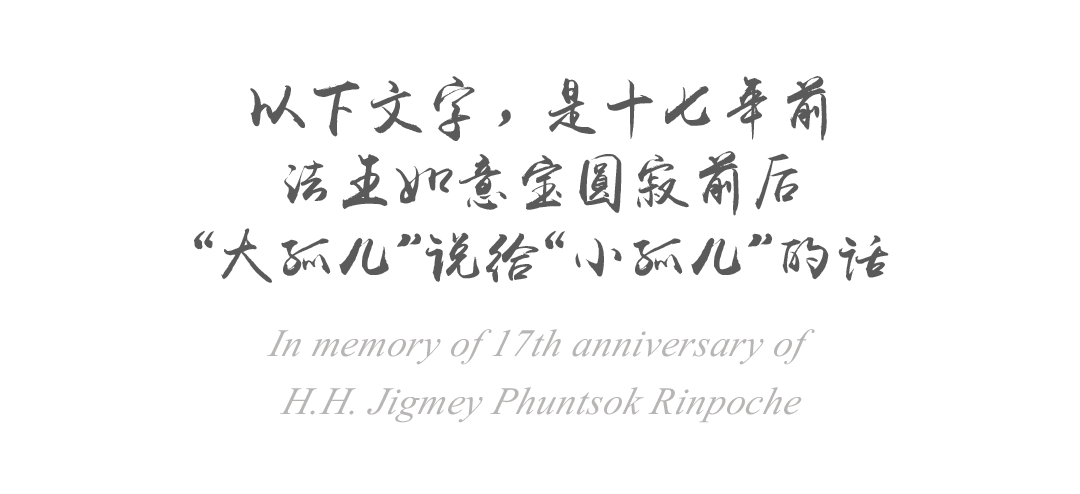 以下文字，是十七年前
法王如意宝圆寂前后
“大孤儿”说给“小孤儿”的话
In memory of 17th anniversary of
H.H. Jigmey Phuntsok Rinpoche